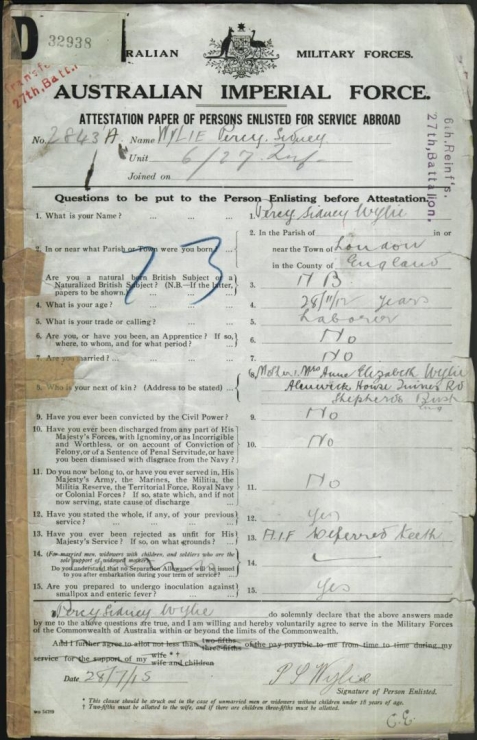 D 32938
AUSTRALIAN MILITARY FORCES.
27th, Battn.
AUSTRALIAN IMPERIAL FORCE.
ATTESTATION PAPER OF PERSONS ENLISTED FOR SERVICE ABROAD
6th, Reinf's.
27th, Battalion.
No. 2843A Name WYLIE Percy Sidney
Unit 6/27 Inf
Joined on
Questions to be put to the Person Enlisting before Attestation.
1. What is your Name? ... ... 1. Percy Sidney Wylie
2. In or near what Parish or Town were you born? ... 2. In the Parish of in or
near the Town of London
in the County of England
73
3. Are you a natural born British Subject or a
Naturalized British Subject? (N.B.—If the latter,
papers to be shown.) 3. N B
4. What is your age? ... 4. 28 11/12 years
5. What is your trade or calling? ... 5. Laborer
6. Are you, or have you been, an Apprentice? If so,
where, to whom, and for what period? ... 6. No
7. Are you married? ... 7. No
8. Who is your next of kin? (Address to be stated) ... 8. Mother Mrs Anne Elizabeth Wylie
Alenwick House Rd
Shepherds Bush
Eng
9. Have you ever been convicted by the Civil Power? ... 9. No
10. Have you ever been discharged from any part of His
Majesty's Forces, with Ignominy, or as Incorrigible
and Worthless, or on account of Conviction of
Felony, or of a Sentence of Penal Servitude, or have
you been dismissed with disgrace from the Navy? 10. No
11. Do you now belong to, or have you ever served in, His
Majesty's Army, the Marines, the Militia, the
Militia Reserve, the Territorial Force, Royal Navy
or Colonial Forces? If so, state which, and if not
now serving, state cause of discharge 11. No
12. Have you stated the whole, if any, of your previous
service? ... 12. Yes
13. Have you ever been rejected as unfit for His
Majesty's Service? If so, on what grounds? ... 13. A.I.F Deferred teeth
14. (For married men, widowers with children, and soldiers who are the
sole support of widowed mother)
Do you understand that no Separation Allowance will be issued
to you after embarkation during your term of service? 14.
15. Are you prepared to undergo inoculation against
smallpox and enteric fever? ... 15. Yes
I, Percy Sidney Wylie do solemnly declare that the above answers made
by me to the above questions are true, and I am willing and hereby voluntarily agree to serve in the Military Forces
of the Commonwealth of Australia within or beyond the limits of the Commonwealth.
And I further agree to allot not less than two-fifths three-fifths of the pay payable to me from time to time during my
service for the support of my wife *† wife and children
Date 28/7/15 P S Wylie
Signature of Person Enlisted.
* This clause should be struck out in the case of unmarried men or widowers without children under 18 years of age.
† Two-fifths must be allotted to the wife, and if there are children three-fifths must be allotted.